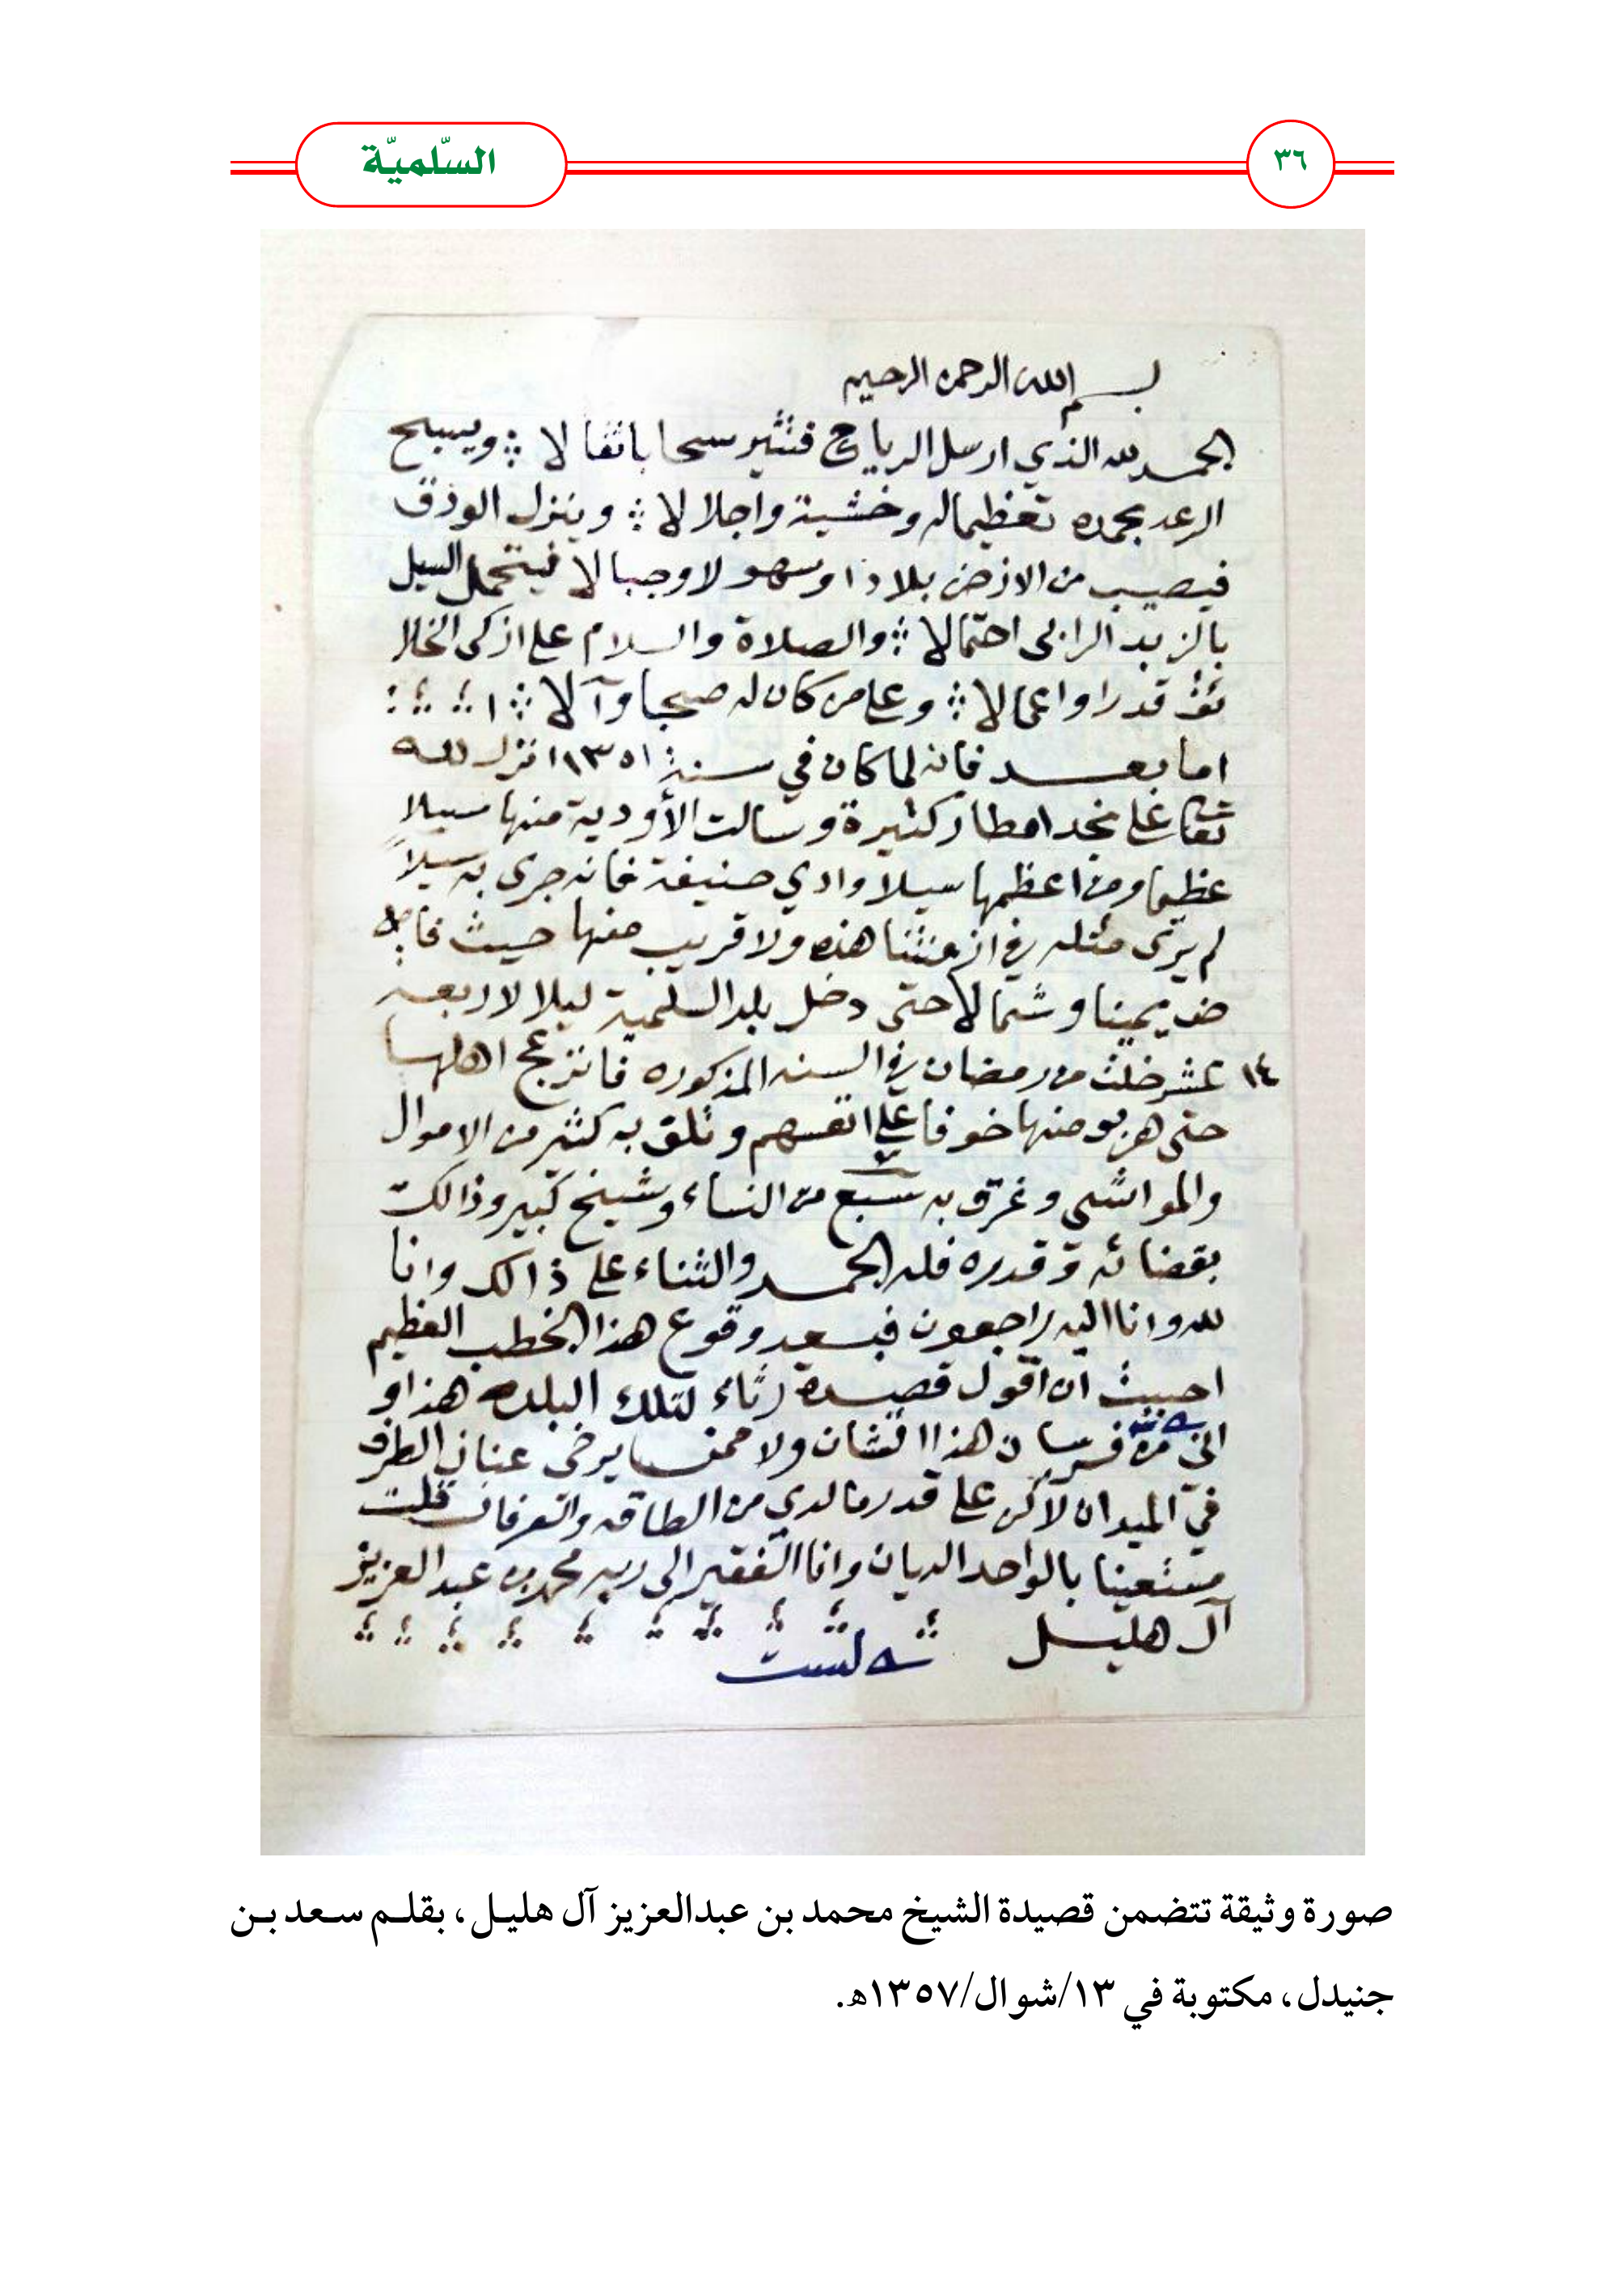 ٣٦
السّلميّة
بسم الله الرحمن الرحيم
الحمد لله الذي ارسل الرياح فتثير سحابا ثقالا ؛ ويسبح
الرعد بحمده تعظيما له وخشية واجلالا ؛ وينزل الودق
فيصيب من الارض بلادا وسهولا وجبالا فيتحمل السيل
بالزبد الرابي احتمالا ؛ والصلاة والسلام على ازكى الخلا
ئق قدرا واعمالا ؛ وعلى من كان له صحبا وآلا ؛
اما بعد فانه لما كان في سنة ١٣٥١ انزل الله
تعالى على نجد امطار كثيرة وسالت الأودية منها سيلا
عظيما ومن اعظمها سيلا وادي حنيفة فانه جرى به سيلاً
لم يرى مثله في ازمنتنا هذه ولا قريب منها حيث فاض
يمينا وشمالا حتى دخل بلد السلمية ليلا لاربعـ
١٤ عشر خلت من رمضان في السنه المذكوره فانزعج اهلها
حتى هربو منها خوفا على انفسهم وتلف به كثير من الاموال
والمواشي وغرق به سبع من النساء وشيخ كبير وذالك
بقضائه وقدره فله الحمد والثناء على ذالك وانا
لله وانا اليه راجعون فبعد وقوع هذا الخطب العظيم
احببت ان اقول قصيدة رثاء لتلك البلده هذا و
اني من فرسان هذا الشان ولا ممن يرخى عنان الطرف
في الميدان لاكن على قدر ما لدي من الطاقه والعرفان قلت
مستعينا بالواحد الديان وانا الفقير الى ربه محمد بن عبد العزيز
آل هليل
لست
صورة وثيقة تتضمن قصيدة الشيخ محمد بن عبدالعزيز آل هليل، بقلم سعد بن
جنيدل، مكتوبة في ١٣/شوال/١٣٥٧هـ.